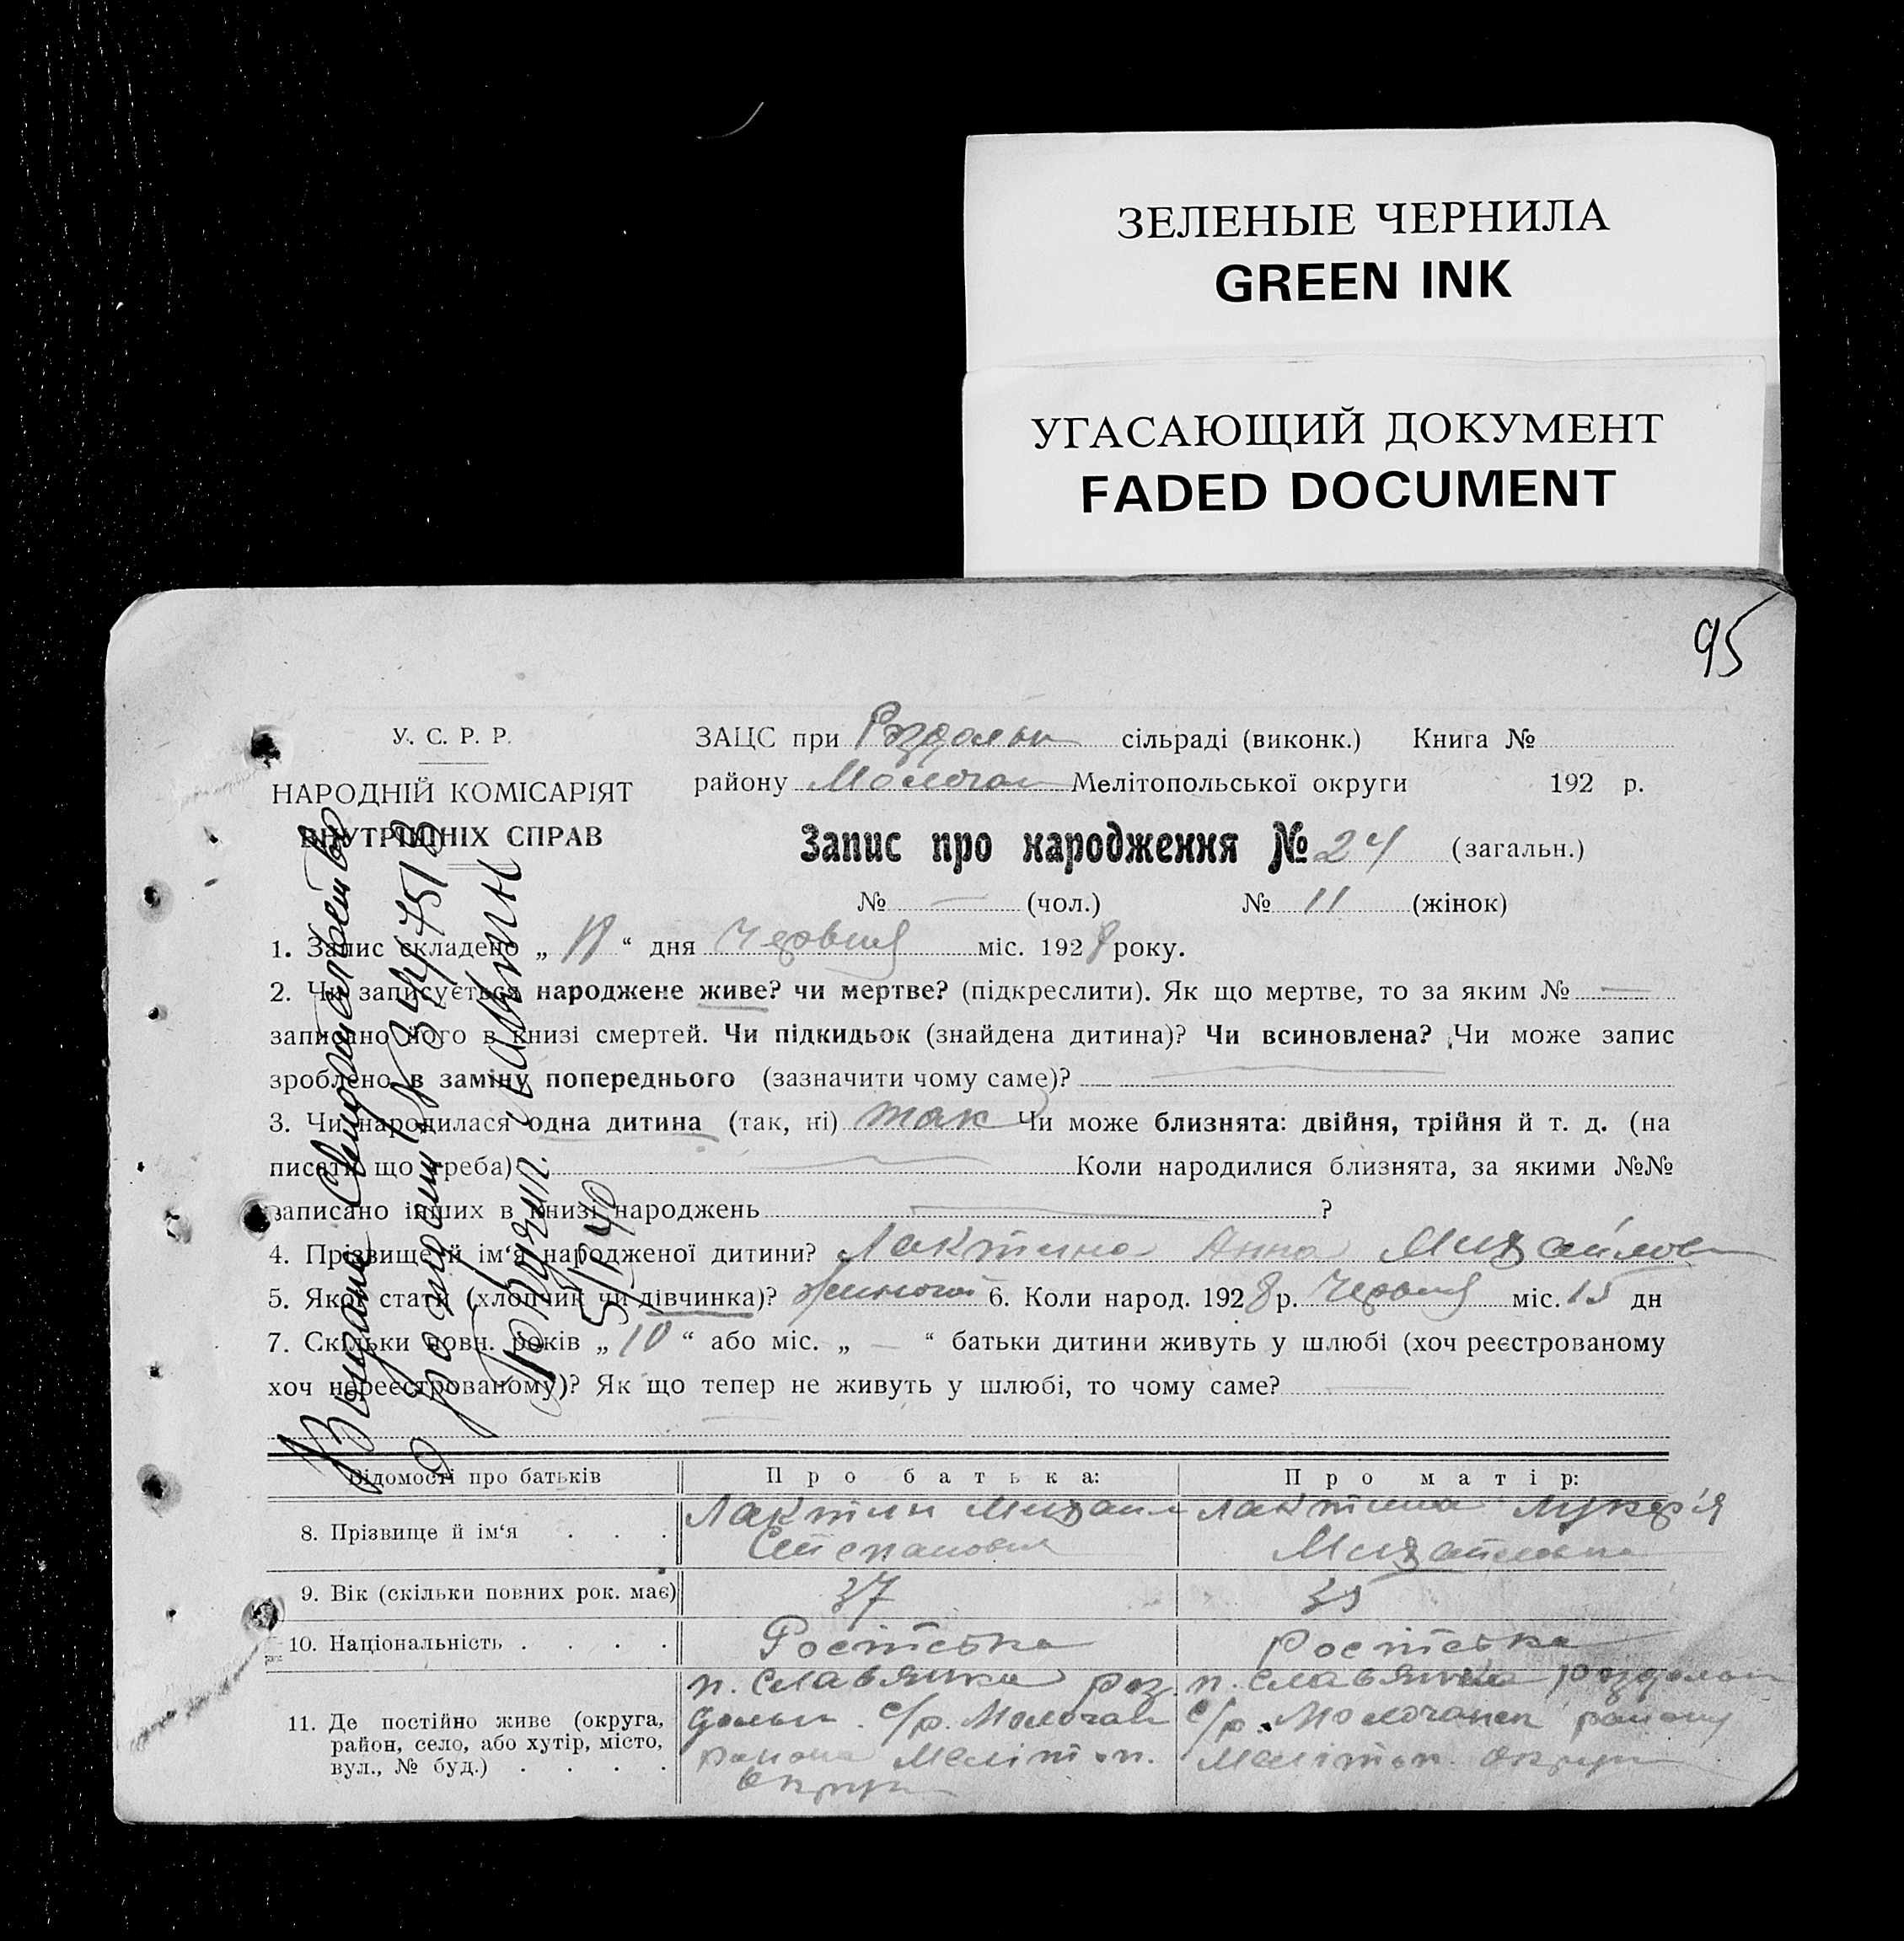 ЗЕЛЕНЫЕ ЧЕРНИЛА
GREEN INK
УГАСАЮЩИЙ ДОКУМЕНТ
FADED DOCUMENT
95
У. С. Р. Р.
НАРОДНІЙ КОМІСАРІЯТ
ВНУТРІШНІХ СПРАВ
ЗАЦС при Роздольн сільраді (виконк.) Книга №
району Молочан Мелітопольської округи 192 р.
Запис про народження № 24 (загальн.)
№ — (чол.) № 11 (жінок)
1. Запис складено „ “ дня Червня міс. 1928 року.
2. Чи записується народжене живе? чи мертве? (підкреслити). Як що мертве, то за яким № —
записано його в книзі смертей. Чи підкидьок (знайдена дитина)? Чи всиновлена? Чи може запис
зроблено в заміну попереднього (зазначити чому саме)? —
3. Чи народилася одна дитина (так, ні) так Чи може близнята: двійня, трійня й т. д. (на
писати що треба) Коли народилися близнята, за якими №№
записано інших в книзі народжень ?
4. Прізвище й ім‘я народженої дитини? Лактина Анна Михайлов
5. Якої статі (хлопчик чи дівчинка)? жиночої 6. Коли народ. 1928 р. Червня міс. 15 дн
7. Скільки повн. років „ 10 “ або міс. „ — “ батьки дитини живуть у шлюбі (хоч реєстрованому
хоч нереєстрованому)? Як що тепер не живуть у шлюбі, то чому саме? —
Відомості про батьків Про батька: Про матір:
8. Прізвище й ім‘я . . .
Лактин Михаил
Степанович
Лактина Лукер'я
Михайловна
9. Вік (скільки повних рок. має) 37 35
10. Національність . . . . Росіиська Росіиська
11. Де постійно живе (округа,
район, село, або хутір, місто,
вул., № буд.) . . . .
п. Славянка Роз
дольн. с/р. Молочан
района Мелітоп.
округи
п. Славянка Роздольн
с/р. Молочанск району
Мелітоп. округи
Выдано Свидетельство